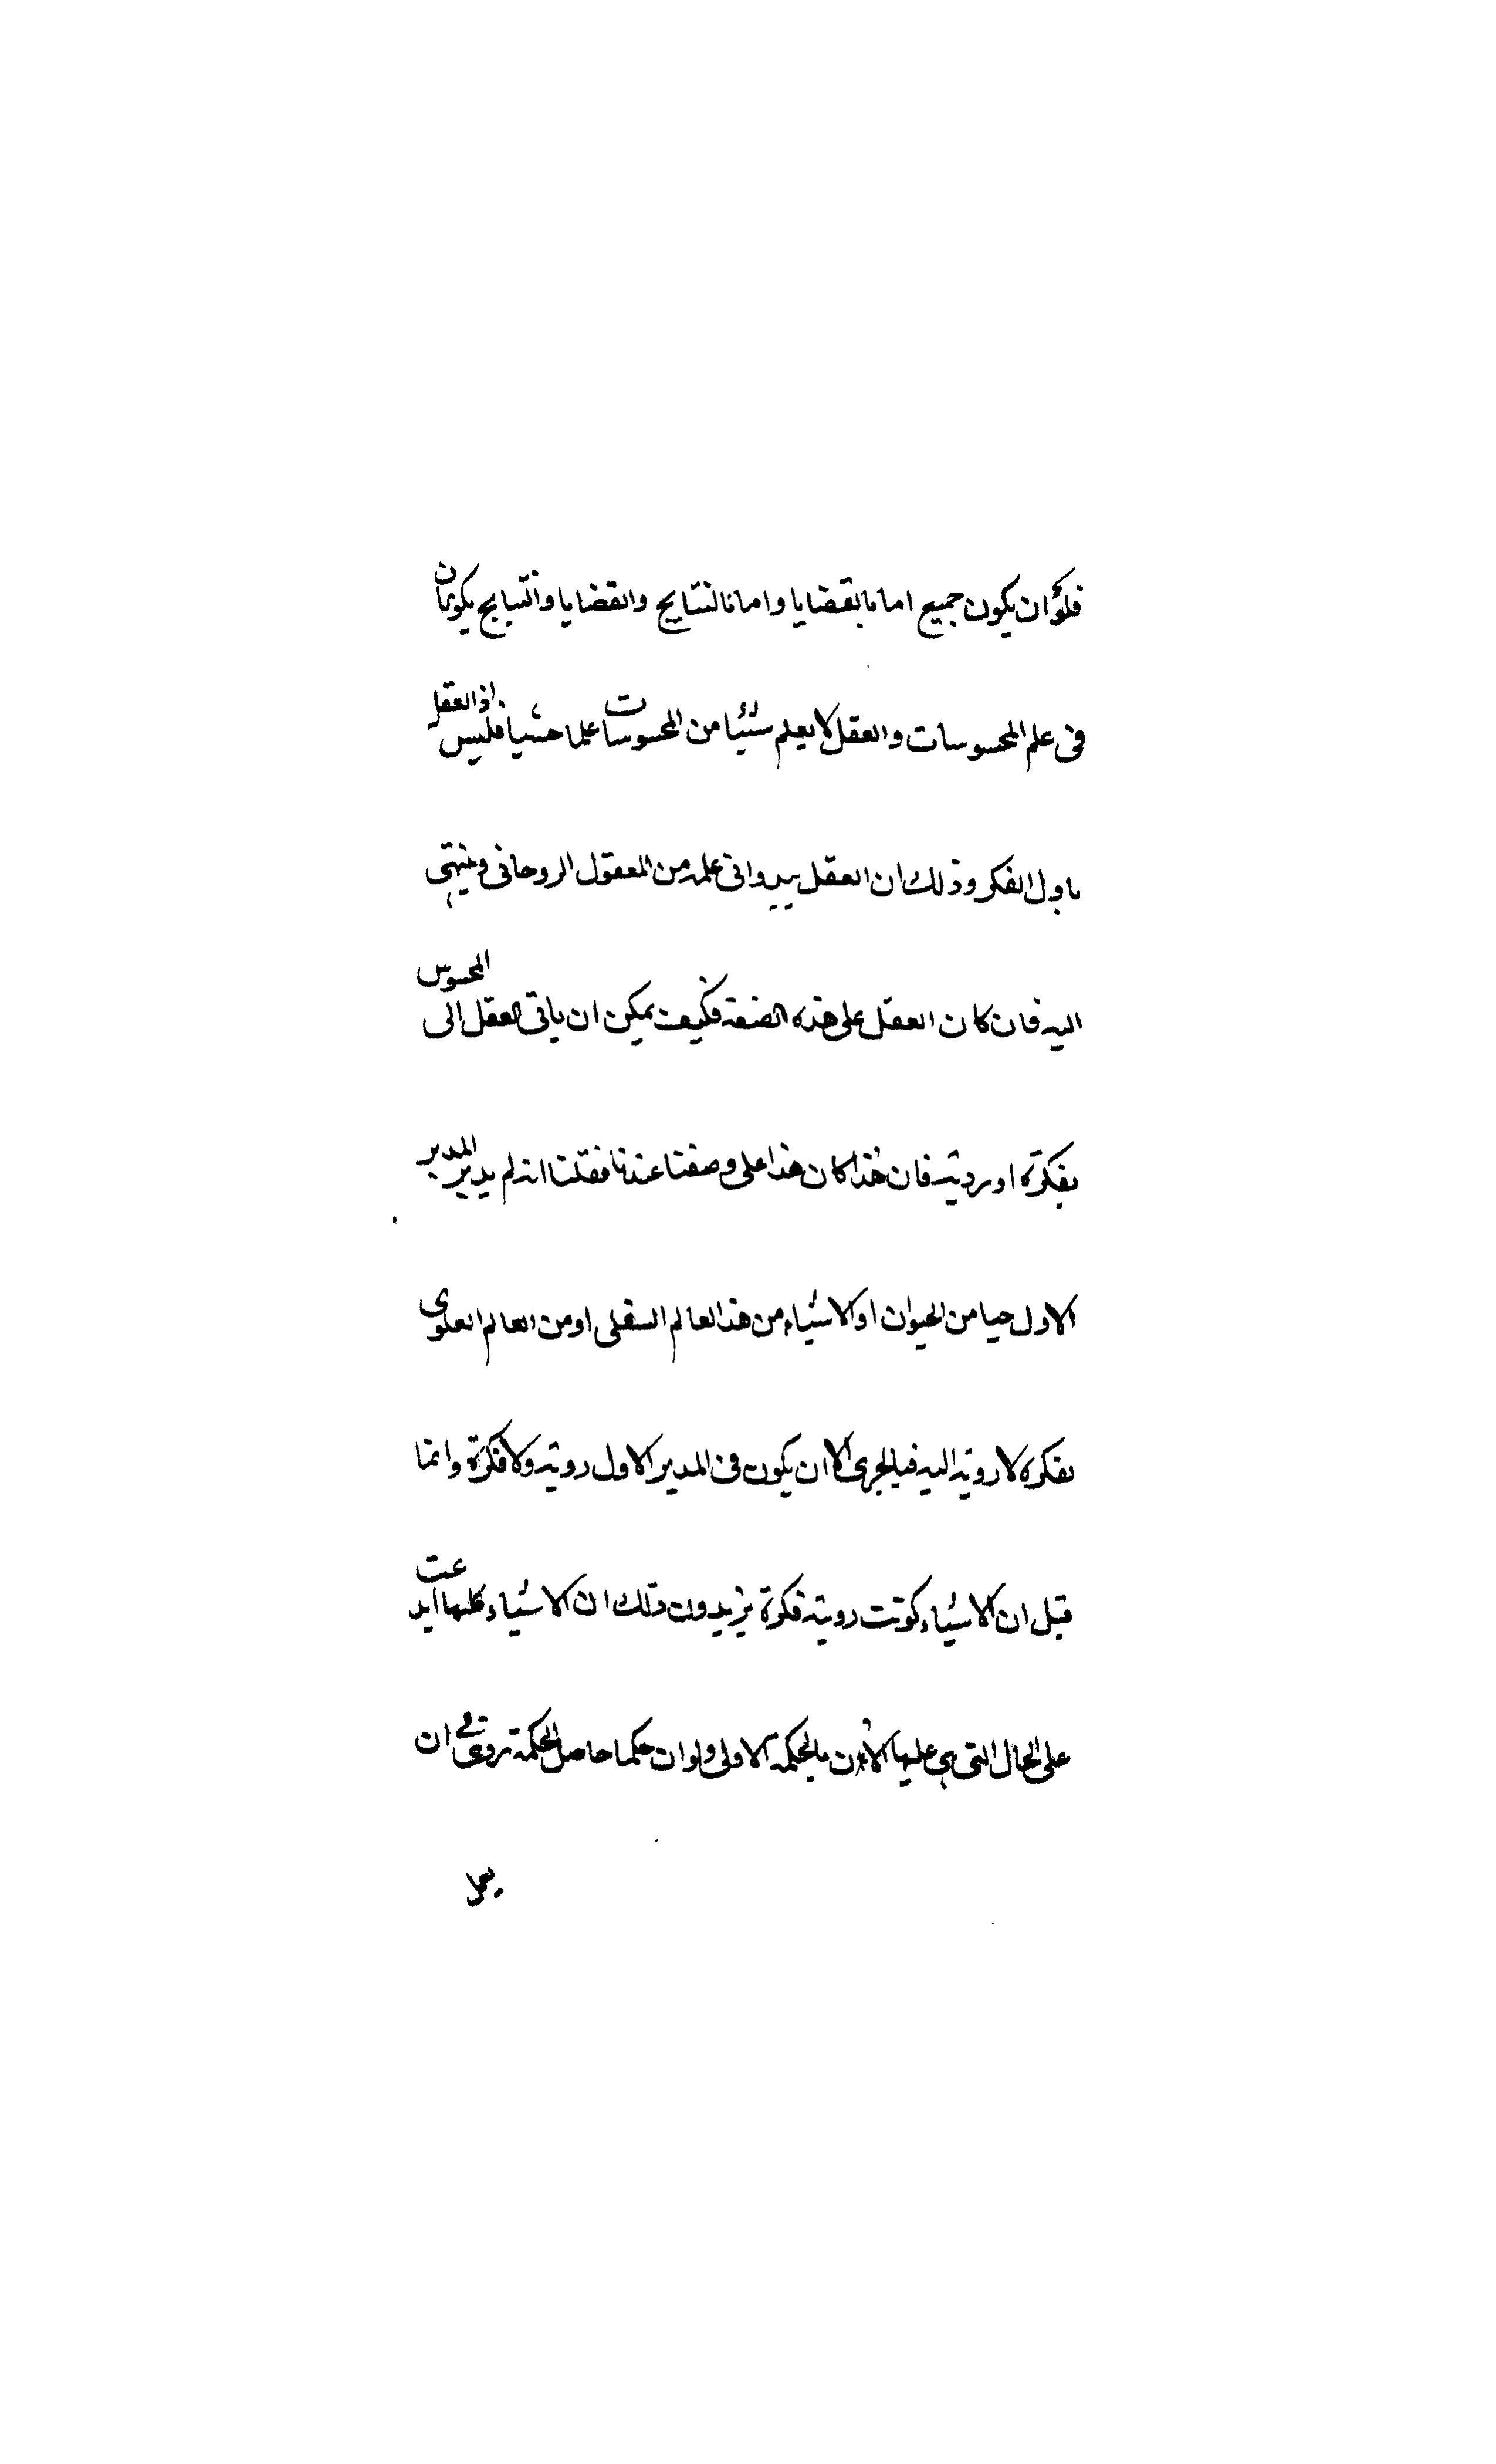 فلو ان يكون جميع اما بالقضايا واما بالنتايج والقضايا والنتيايج يكونان
فى علم المحسوسات والعقل لا يعلم شيئا من المحسوسات علما حسيا فليس اذ العقل
باول الفكر وذلك ان العقل يبدوا فى علمه من المعقول الروحانى وينتهى
اليه فان كان العقل على هذه الصفة فكيف يمكن ان ياتى العقل الى المحسوس
بفكرة او بروية فان هذا كان هذا على وصفنا عندنا فقلنا انه لم يدبر المدبر
الاول حيا من الحيوان او الاشياء من هذا العالم السفلى او من العالم العلوى
بفكرة لا روية اليه فبالحرى الا ان يكون فى المدبر الاول روية ولا فكرة وانما
قيل ان الاشياء كونت روية فكرة يريدون ذلك ان الاشياء كلها ابدعت
على الحال التى هى عليها الان بالحكمة الاولى ولو ان حكما حاصل الحكمة تروى فى ان
يعمل